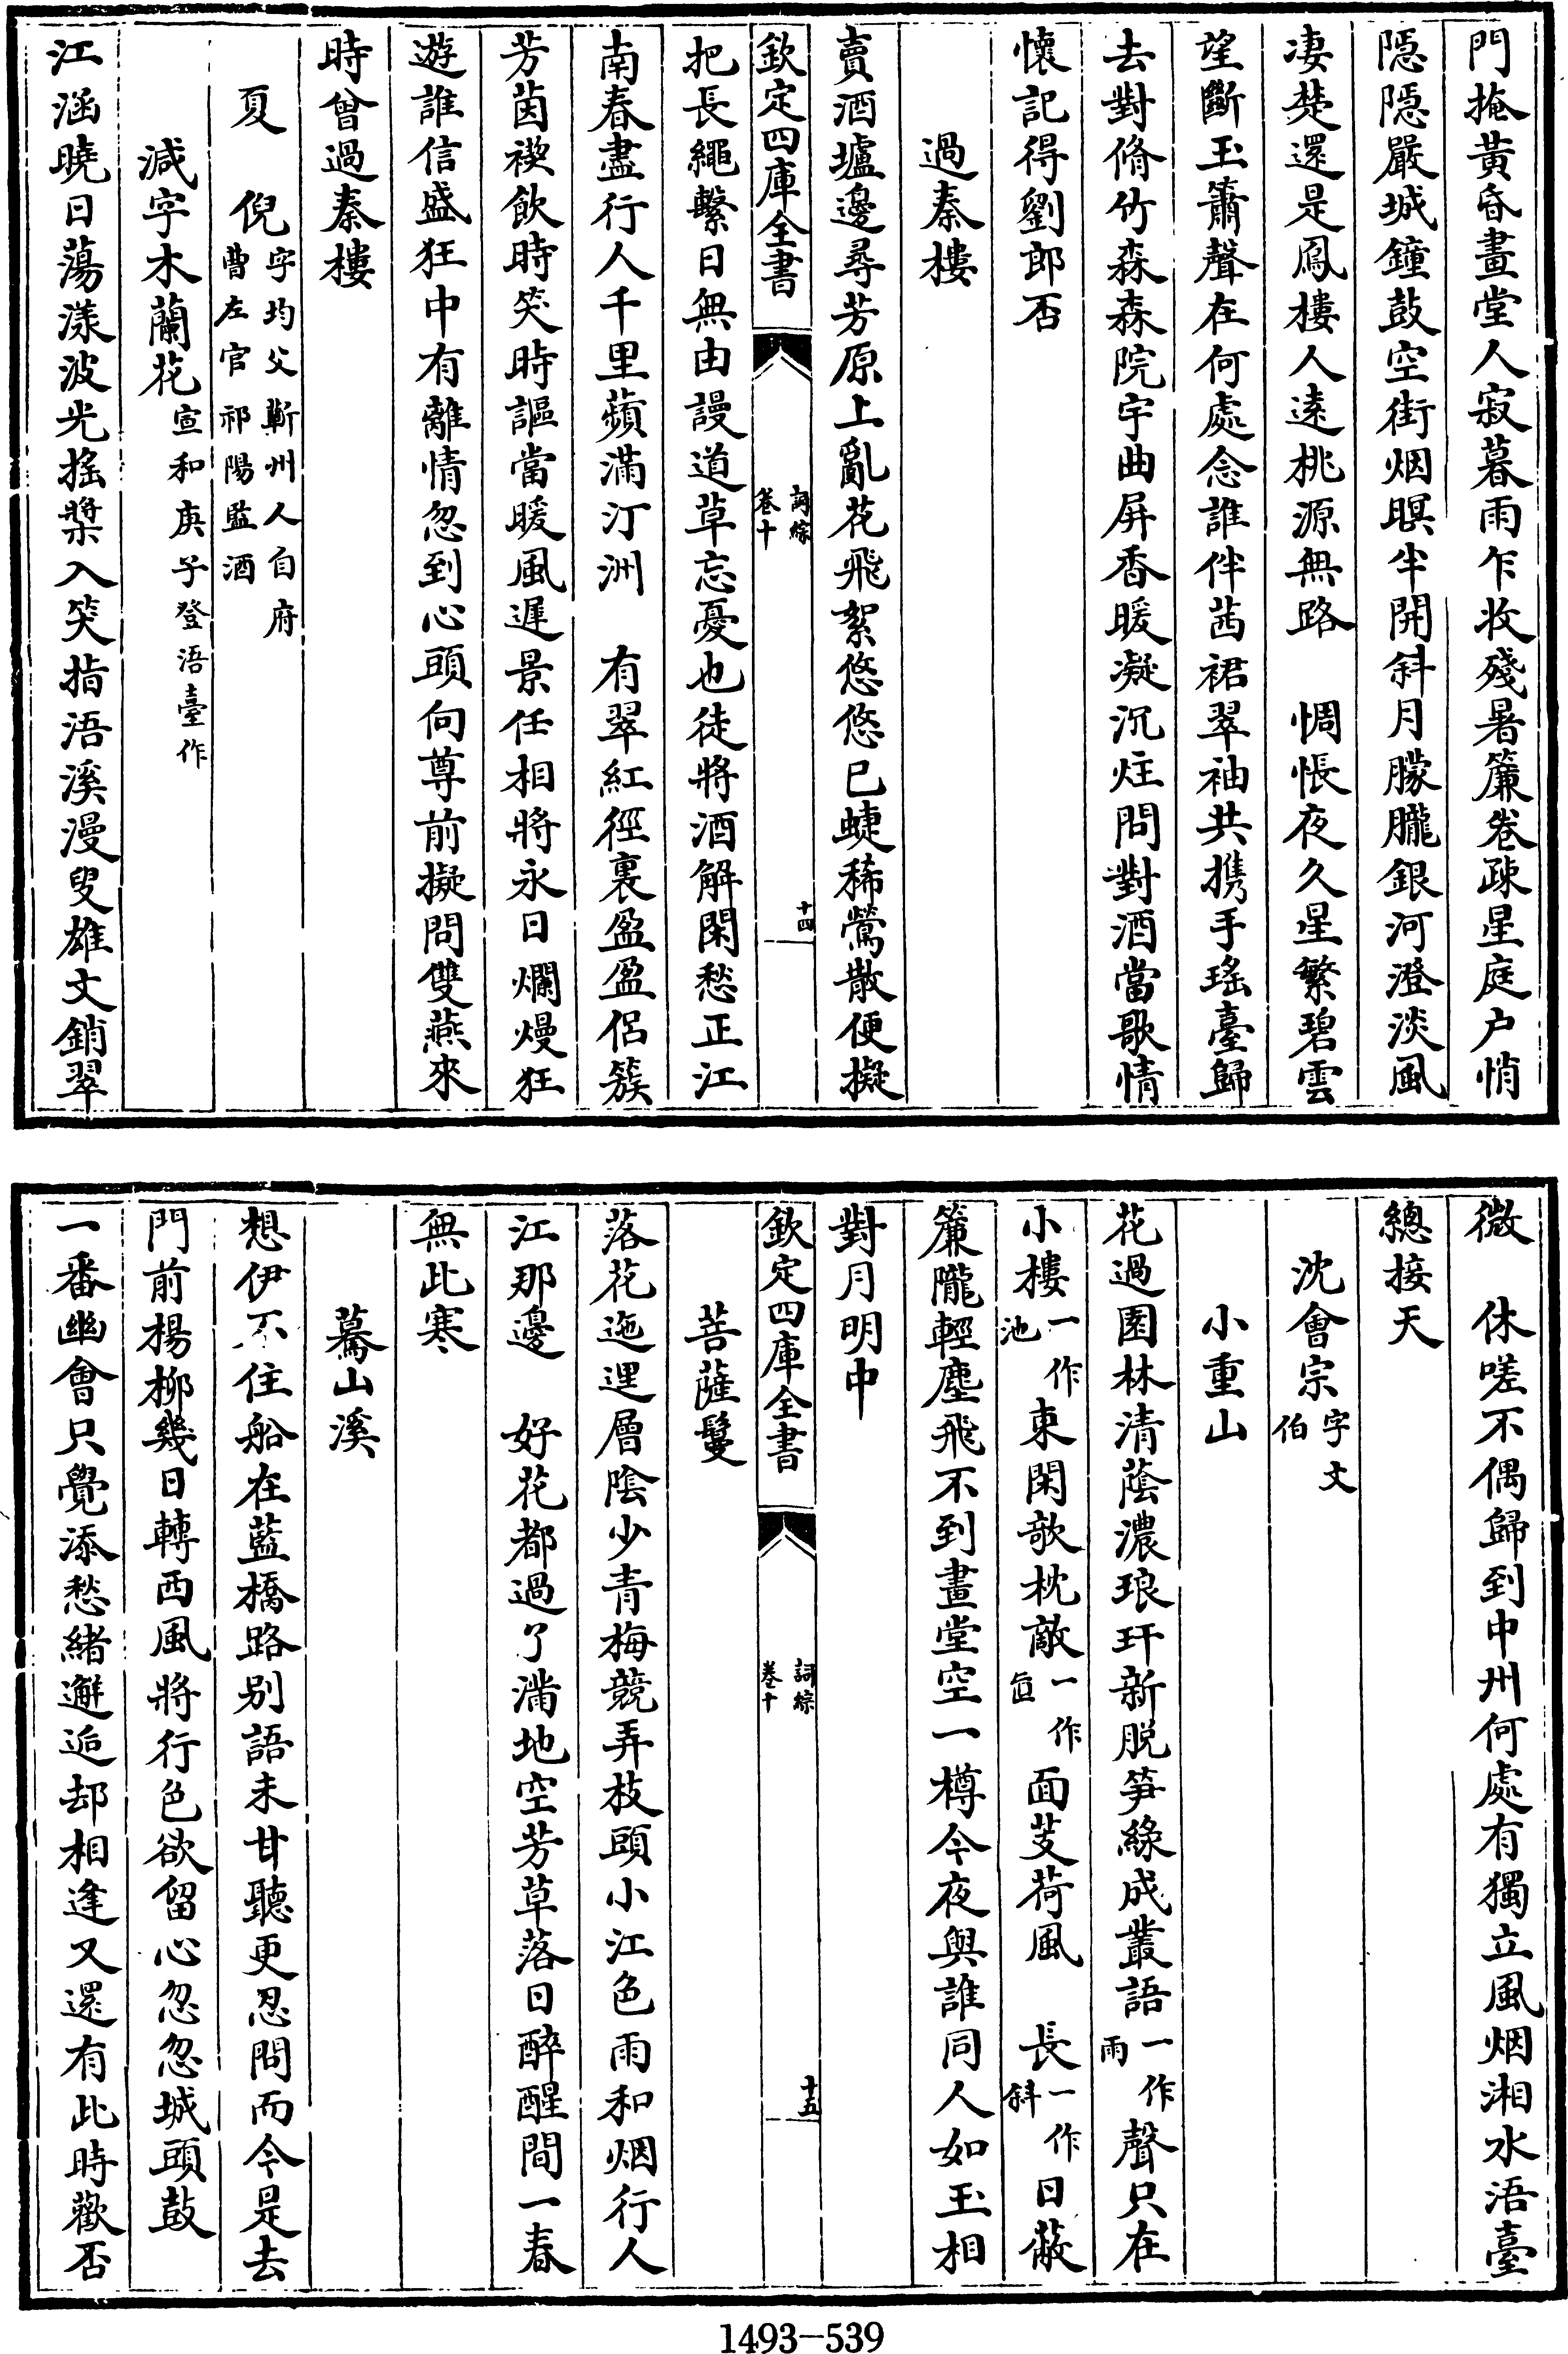 門掩黄昏畫堂人寂暮雨乍收殘暑簾卷疎星庭户悄
隱隱嚴城鐘鼓空街烟暝半開斜月朦朧銀河澄淡風
凄楚還是鳳樓人遠桃源無路　惆悵夜久星繁碧雲
望斷玉簫聲在何處念誰伴茜裙翠袖共携手瑤臺歸
去對脩竹森森院宇曲屏香暖凝沉炷問對酒當歌情
懷記得劉郎否
過秦樓
賣酒壚邊尋芳原上亂花飛絮悠悠已蜨稀鶯散便擬
欽定四庫全書
詞綜
卷十
十四
把長繩繫日無由謾道草忘憂也徒將酒解閑愁正江
南春盡行人千里蘋滿汀洲　有翠紅徑裏盈盈侶簇
芳茵禊飲時笑時謳當暖風遲景任相將永日爛熳狂
遊誰信盛狂中有離情忽到心頭向尊前擬問雙燕來
時曾過秦樓
夏　倪字均父蘄州人自府
曹左官祁陽監酒
減字木蘭花宣和庚子登浯臺作
江涵曉日蕩漾波光搖槳入笑指浯溪漫叟雄文銷翠
微　休嗟不偶歸到中州何處有獨立風烟湘水浯臺
總接天
沈會宗字文
伯
小重山
花過園林清蔭濃琅玕新脱笋綠成叢語一作
雨聲只在
小樓一作
池東閑欹枕敵一作
直面芰荷風　長一作
斜日蔽
簾隴輕塵飛不到畫堂空一樽今夜與誰同人如玉相
對月明中
欽定四庫全書
詞綜
卷十
十五
菩薩鬘
落花迤邐層陰少青梅競弄枝頭小江色雨和烟行人
江那邊　好花都過了滿地空芳草落日醉醒間一春
無此寒
驀山溪
想伊不住船在藍橋路别語未甘聽更忍問而今是去
門前楊柳幾日轉西風將行色欲留心忽忽城頭鼓
一番幽會只覺添愁緒邂逅却相逢又還有此時歡否
1493-539